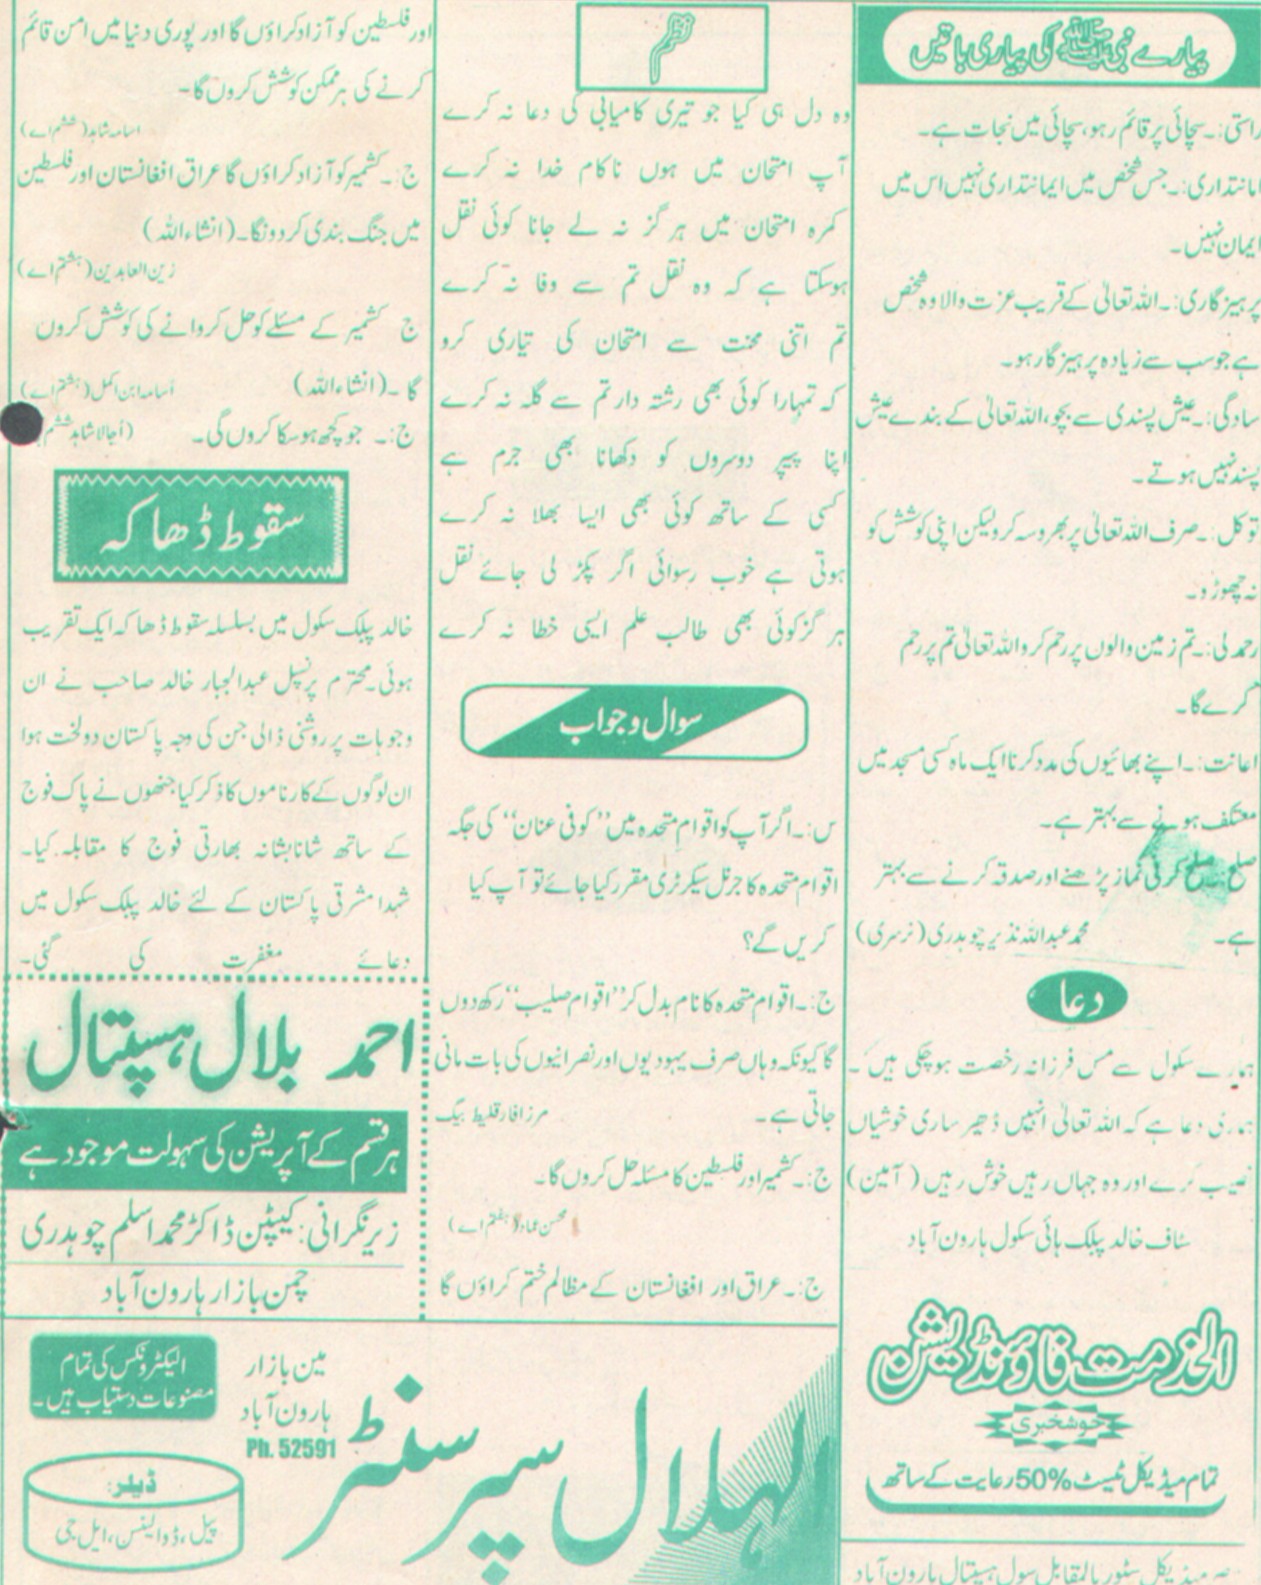 پیارے نبی ﷺ کی پیاری باتیں
راستی:۔سچائی پر قائم رہو،سچائی میں نجات ہے۔
امانتداری:۔جس شخص میں ایمانتداری نہیں اس میں
ایمان نہیں۔
پرہیزگاری:۔اللہ تعالیٰ کے قریب عزت والا وہ شخص
ہے جو سب سے زیادہ پرہیز گار ہو۔
سادگی:۔عیش پسندی سے بچو،اللہ تعالیٰ کے بندے عیش
پسند نہیں ہوتے۔
توکل:۔صرف اللہ تعالیٰ پر بھروسہ کرو لیکن اپنی کوشش کو
نہ چھوڑو۔
رحمدلی:۔تم زمین والوں پر رحم کرو اللہ تعالیٰ تم پر رحم
کرے گا۔
اعانت:۔اپنے بھائیوں کی مدد کرنا ایک ماہ کسی مسجد میں
معتکف ہونے سے بہتر ہے۔
صلح صلح کرنی نماز پڑھنے اور صدقہ کرنے سے بہتر
ہے۔ محمد عبداللہ نذیر چوہدری (نرسری)
دعا
ہمارے سکول سے مس فرزانہ رخصت ہو چکی ہیں۔
ہماری دعا ہے کہ اللہ تعالیٰ انہیں ڈھیر ساری خوشیاں
نصیب کرے اور وہ جہاں رہیں خوش رہیں (آمین)
سٹاف خالد پبلک ہائی سکول ہارون آباد
الخدمت فاؤنڈیشن
خوشخبری
تمام میڈیکل ٹیسٹ %50 رعایت کے ساتھ
میڈیکل سٹور بالمقابل سول ہسپتال ہارون آباد
نظم
وہ دل ہی کیا جو تیری کامیابی کی دعا نہ کرے
آپ امتحان میں ہوں ناکام خدا نہ کرے
کمرہ امتحان میں ہر گز نہ لے جانا کوئی نقل
ہوسکتا ہے کہ وہ نقل تم سے وفا نہ کرے
تم اتنی محنت سے امتحان کی تیاری کرو
کہ تمہارا کوئی بھی رشتہ دار تم سے گلہ نہ کرے
اپنا پیپر دوسروں کو دکھانا بھی جرم ہے
کسی کے ساتھ کوئی بھی ایسا بھلا نہ کرے
ہوتی ہے خوب رسوائی اگر پکڑ لی جائے نقل
ہر گز کوئی بھی طالب علم ایسی خطا نہ کرے
سوال و جواب
س:۔اگر آپ کو اقوام متحدہ میں "کوفی عنان" کی جگہ
اقوام متحدہ کا جنرل سیکرٹری مقرر کیا جائے تو آپ کیا
کریں گے؟
ج:۔اقوام متحدہ کا نام بدل کر "اقوام صلیب" رکھ دوں
گا کیونکہ وہاں صرف یہودیوں اور نصرانیوں کی بات مانی
جاتی ہے۔ مرزا فارقلیط بیگ
ج:۔کشمیر اور فلسطین کا مسئلہ حل کروں گا۔
محسن عماد (ہفتم اے)
ج:۔عراق اور افغانستان کے مظالم ختم کراؤں گا
اور فلسطین کو آزاد کراؤں گا اور پوری دنیا میں امن قائم
کرنے کی ہر ممکن کوشش کروں گا۔
اسامہ شاہد (ششم اے)
ج:۔کشمیر کو آزاد کراؤں گا عراق افغانستان اور فلسطین
میں جنگ بندی کردونگا۔(انشاءاللہ)
زین العابدین (ہشتم اے)
ج کشمیر کے مسئلے کو حل کروانے کی کوشش کروں
گا۔(انشاءاللہ) اُسامہ ابن اکمل (ہشتم اے)
ج:۔ جو کچھ ہو سکا کروں گی۔ (اُجالا شاہد ششم
سقوط ڈھاکہ
خالد پبلک سکول میں بسلسلہ سقوط ڈھاکہ ایک تقریب
ہوئی۔محترم پرنسپل عبدالجبار خالد صاحب نے ان
وجوہات پر روشنی ڈالی جن کی وجہ پاکستان دولخت ہوا
ان لوگوں کے کارناموں کا ذکر کیا جنھوں نے پاک فوج
کے ساتھ شانابشانہ بھارتی فوج کا مقابلہ کیا۔
شہدا مشرقی پاکستان کے لئے خالد پبلک سکول میں
دعائے مغفرت کی گئی۔
احمد بلال ہسپتال
ہر قسم کے آپریشن کی سہولت موجود ہے
زیر نگرانی: کیپٹن ڈاکٹر محمد اسلم چوہدری
چمن بازار ہارون آباد
الہلال سپر سنٹر
مین بازار
ہارون آباد
Ph. 52591
الیکٹرونکس کی تمام
مصنوعات دستیاب ہیں۔
ڈیلر:
پیل، ڈاولینس، ایل جی